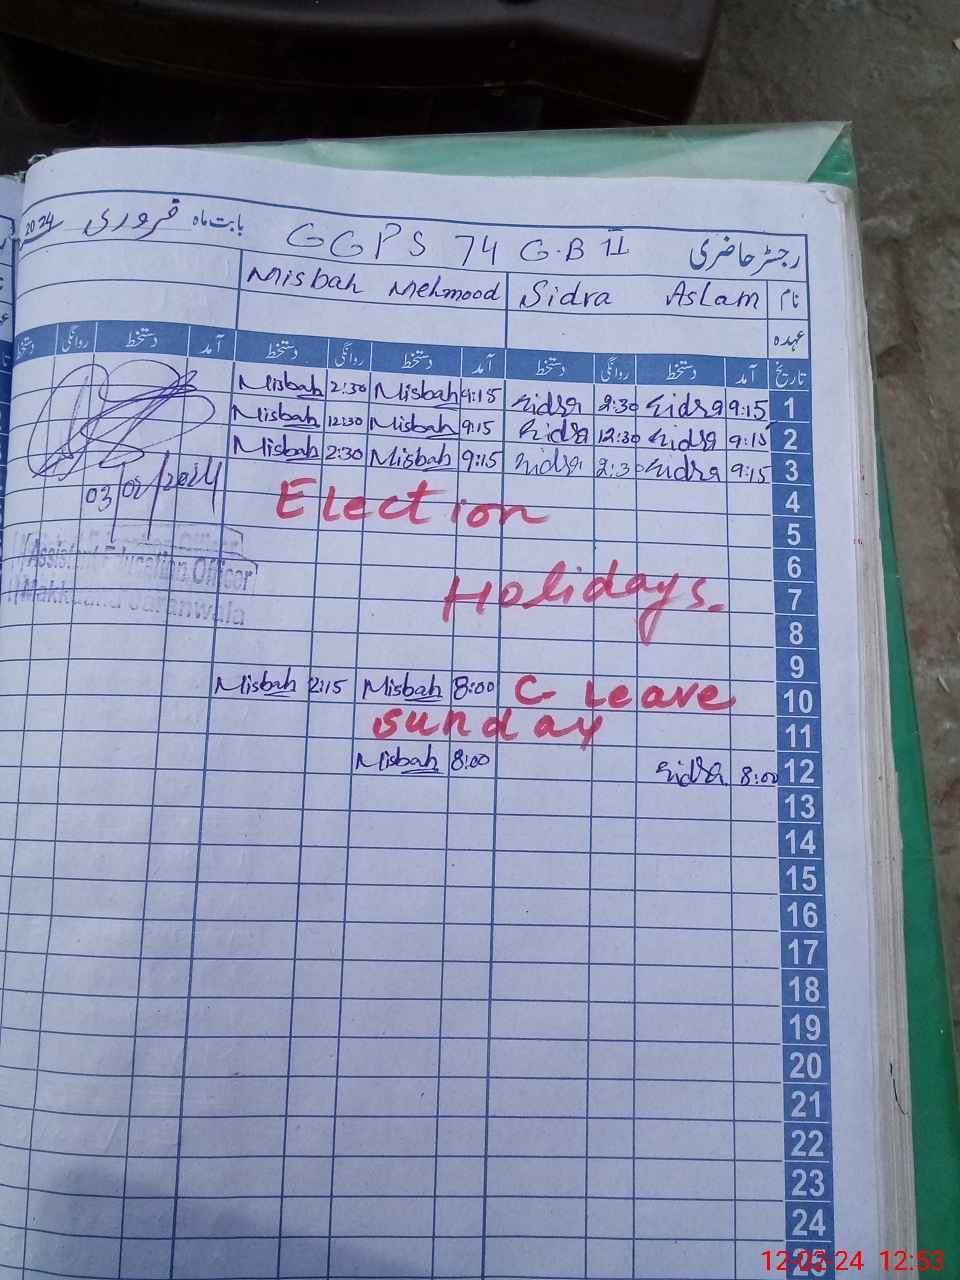 رجسٹر حاضری GGPS 74 G.B II بابت ماہ فروری 2024
نام Sidra Aslam Misbah Mehmood
عہدہ
تاریخ آمد دستخط روانگی دستخط آمد دستخط روانگی دستخط آمد دستخط روانگی دستخط
1 9:15 Sidra 2:30 Sidra 9:15 Misbah 2:30 Misbah
2 9:15 Sidra 12:30 Sidra 9:15 Misbah 12:30 Misbah
3 9:15 Sidra 2:30 Sidra 9:15 Misbah 2:30 Misbah
03/02/2024
4 Election
5
Assistant Education Officer
6
7 Holidays.
Jaranwala
8
9
10 C Leave 8:00 Misbah 2:15 Misbah
11 Sunday
12 8:00 Sidra 8:00 Misbah
13
14
15
16
17
18
19
20
21
22
23
24
25
12-02-24 12:53